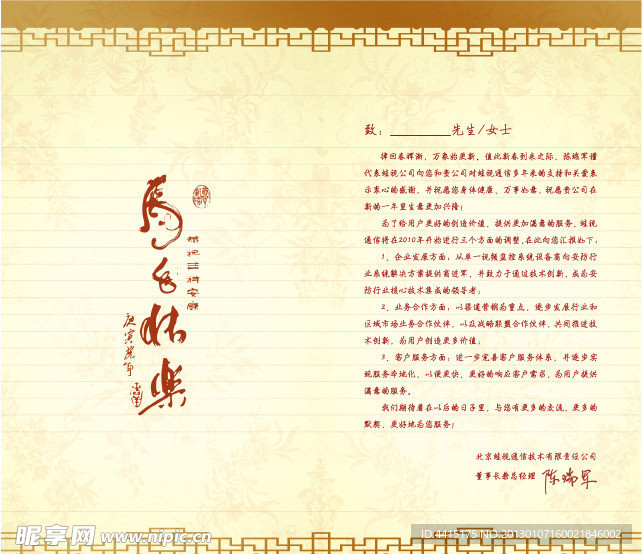 致：__________先生/女士
律回春晖渐，万象始更新。值此新春到来之际，陈瑞军谨
代表蛙视公司向您和贵公司对蛙视通信多年来的支持和关爱表
示衷心的感谢，并祝愿您身体健康、万事如意，祝愿贵公司在
新的一年里生意更加兴隆！
为了给用户更好的创造价值，提供更加满意的服务，蛙视
通信将在2010年开始进行三个方面的调整，在此向您汇报如下：
1、企业发展方面：从单一视频监控系统设备商向安防行
业系统解决方案提供商迈革，并致力于通过技术创新，成为安
防行业核心技术集成的领导者；
2、业务合作方面：以渠道营销为重点，逐步发展行业和
区域市场业务合作伙伴，以及战略联盟合作伙伴，共同推进技
术创新，为用户创造更多价值；
3、客户服务方面：进一步完善客户服务体系，并逐步实
现服务本地化，以便更快、更好的响应客户需求，为用户提供
满意的服务。
我们期待着在以后的日子里，与您有更多的交流，更多的
默契，更好地为您服务！
北京蛙视通信技术有限责任公司
董事长兼总经理 陈瑞军
恭祝吉祥安康
庚寅虎年
昵享网 www.nipic.cn
ID:4415175 NO:20130107160021846002